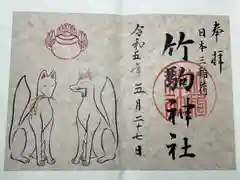 奉拝
日本三稲荷
竹駒神社
令和五年五月二十七日